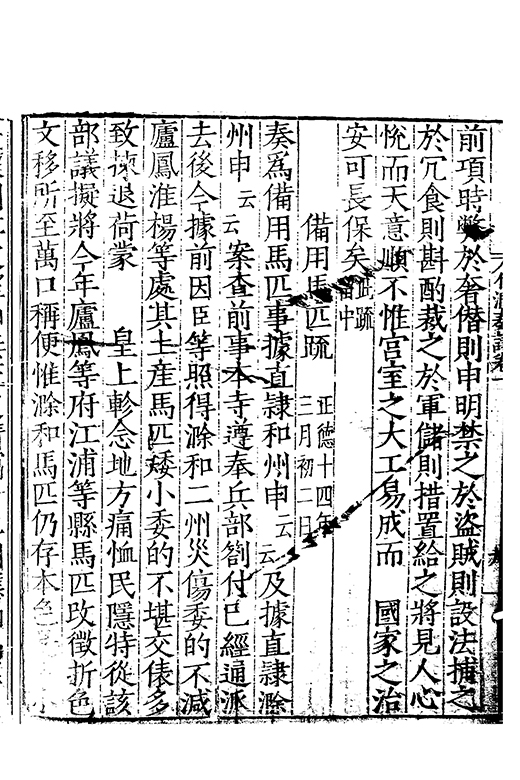 前項時弊於奢僭則申明禁之於盜賊則設法捕之
於冗食則斟酌裁之於軍儲則措置給之將見人心
悅而天意順不惟宮室之大工易成而 國家之治
安可長保矣此疏留中
備用馬匹疏 正德十四年三月初二日
奏爲備用馬匹事據直隷和州申云云及據直隷滁
州申云云案查前事本寺遵奉兵部劄付已經通派
去後今據前因臣等照得滁和二州災傷委的不減
廬鳳淮楊等處其土産馬匹矮小委的不堪交俵多
致揀退荷蒙 皇上軫念地方痛恤民隱特從該
部議擬將今年廬鳳等府江浦等縣馬匹改徵折色
文移所至萬口稱便惟滁和馬匹仍存本色